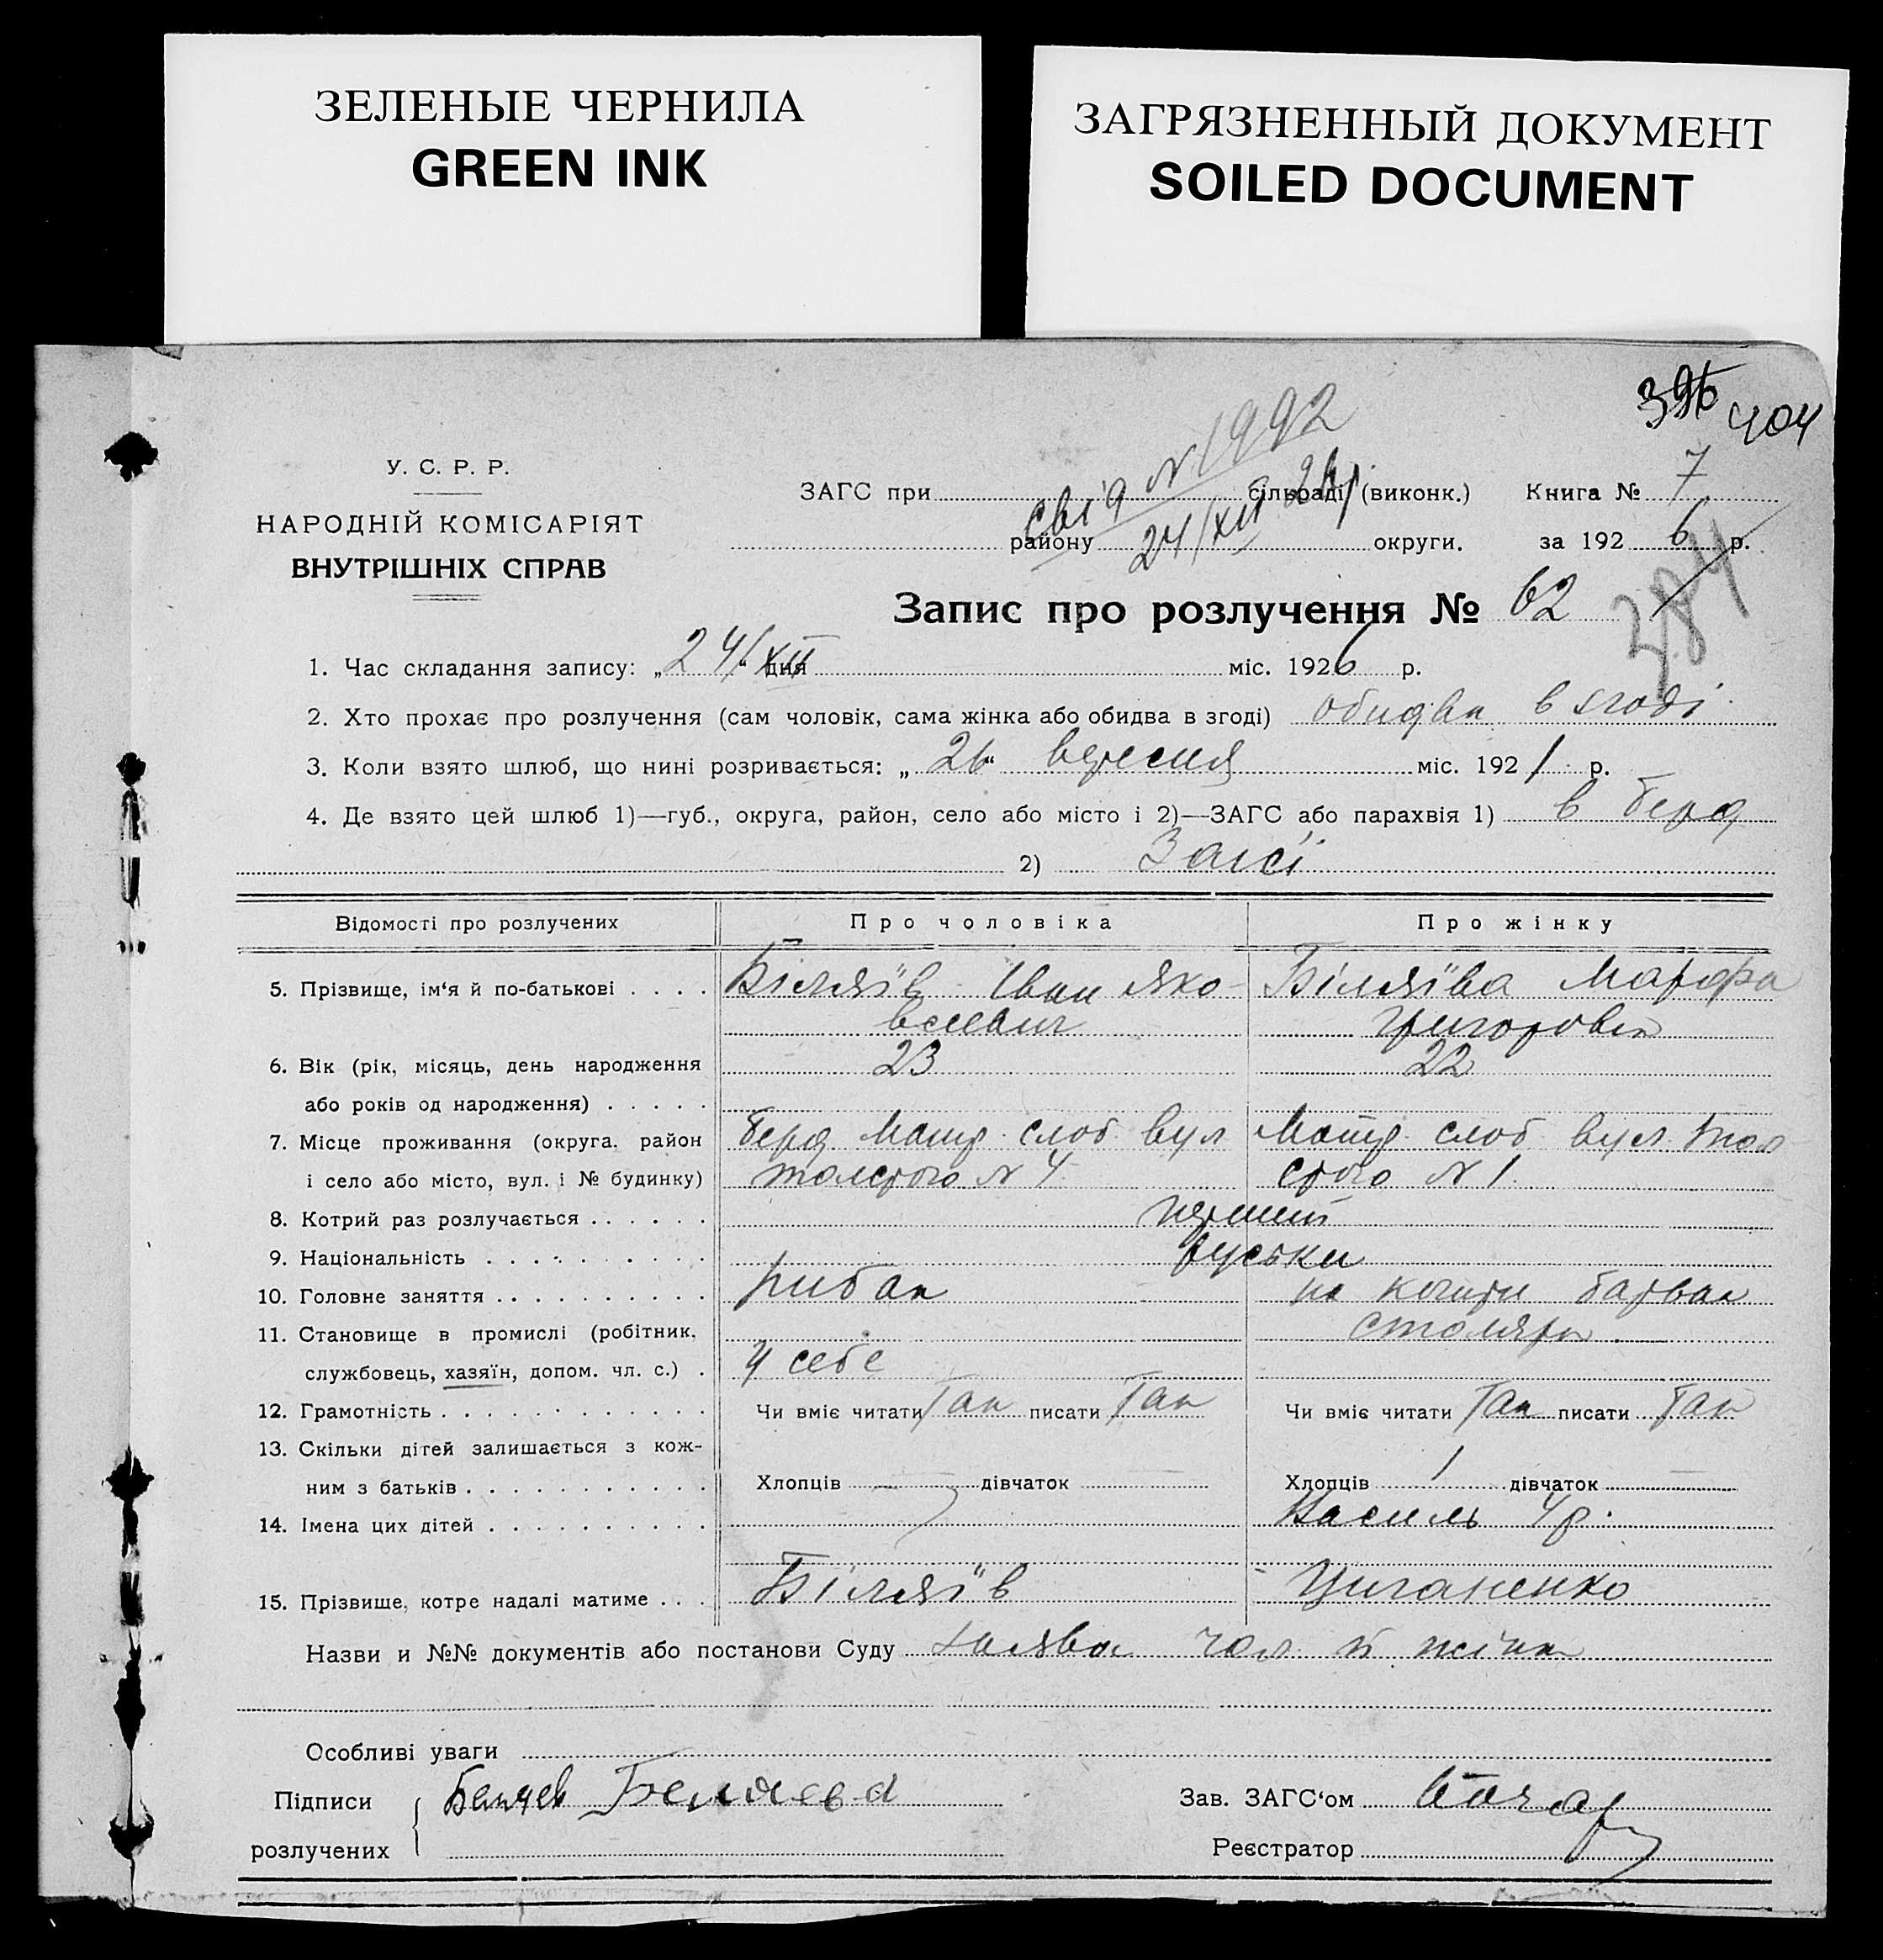 ЗЕЛЕНЫЕ ЧЕРНИЛА
GREEN INK
ЗАГРЯЗНЕННЫЙ ДОКУМЕНТ
SOILED DOCUMENT
396 404
У. С. Р. Р.
НАРОДНІЙ КОМІСАРІЯТ
ВНУТРІШНІХ СПРАВ
N 1992
ЗАГС при сільраді (виконк.) Книга № 7
району 24/XII округи. за 192 6 р.
Запис про розлучення № 62
384
1. Час складання запису: „ 24/XII “ дня міс. 1926 р.
2. Хто прохає про розлучення (сам чоловік, сама жінка або обидва в згоді) обидва в згоді
3. Коли взято шлюб, що нині розривається: „ 26 “ вересня міс. 192 1 р.
4. Де взято цей шлюб 1)—губ., округа, район, село або місто і 2)—ЗАГС або парахвія 1) в берд
2) Загсі
Відомості про розлучених Про чоловіка Про жінку
5. Прізвище, ім‘я й по-батькові . . . . Біляїв Іван Яко- Біляїва Марфа
вович Григоровна
6. Вік (рік, місяць, день народження 23 22
або років од народження) . . . . .
7. Місце проживання (округа, район берд. слоб вул слоб вул. Тол
і село або місто, вул. і № будинку) толстого N 4 стого N 1.
8. Котрий раз розлучається . . . . . . перший
9. Національність . . . . . . . . . . руськи
10. Головне заняття . . . . . . . . . . рибак на кошти
11. Становище в промислі (робітник, столяра
службовець, хазяїн, допом. чл. с.) . у себе
12. Грамотність . . . . . . . . . . . . Чи вміє читати Так писати Так Чи вміє читати Так писати Так
13. Скільки дітей залишається з кож-
ним з батьків . . . . . . . . . . . Хлопців — дівчаток — Хлопців 1 дівчаток —
14. Імена цих дітей . . . . . . . . . . Василь 4 р.
15. Прізвище, котре надалі матиме . . . Біляїв Циганенко
Назви и №№ документів або постанови Суду заява чол й жінки
Особливі уваги
Підписи Беляев Беляева Зав. ЗАГС‘ом
розлучених Реєстратор